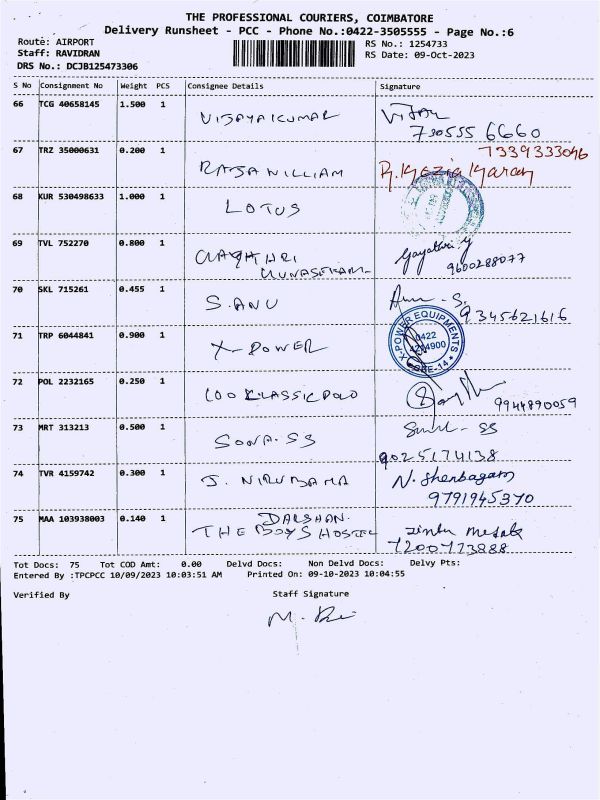 THE PROFESSIONAL COURIERS, COIMBATORE
Delivery Runsheet - PCC - Phone No.:0422-3505555 - Page No.:6
Route: AIRPORT
Staff: RAVIDRAN
DRS No.: DCJB125473306
RS No.: 1254733
RS Date: 09-Oct-2023
S No Consignment No Weight PCS Consignee Details Signature
66 TCG 40658145 1.500 1 VIJAYAIKUMAR
730555 6660
67 TRZ 35000631 0.200 1 RAJA WILLIAM 7339333096
68 KUR 530498633 1.000 1 LOTUS
69 TVL 752270 0.800 1 Gayathri y
9600288077
70 SKL 715261 0.455 1 S. ANU
9345621616
71 TRP 6044841 0.900 1 X-POWER X-POWER EQUIPMENTS
0422
CBE-14
72 POL 2232165 0.250 1 100 KLASSIC POLO
9944890059
73 MRT 313213 0.500 1 SONA. SS
9025174138
74 TVR 4159742 0.300 1 J. NIRUBAMA N. Shenbagam
9791945370
75 MAA 103938003 0.140 1 DARSHAN.
THE BOYS HOSTEL
7200773888
Tot Docs: 75 Tot COD Amt: 0.00 Delvd Docs: Non Delvd Docs: Delvy Pts:
Entered By :TPCPCC 10/09/2023 10:03:51 AM Printed On: 09-10-2023 10:04:55
Verified By Staff Signature